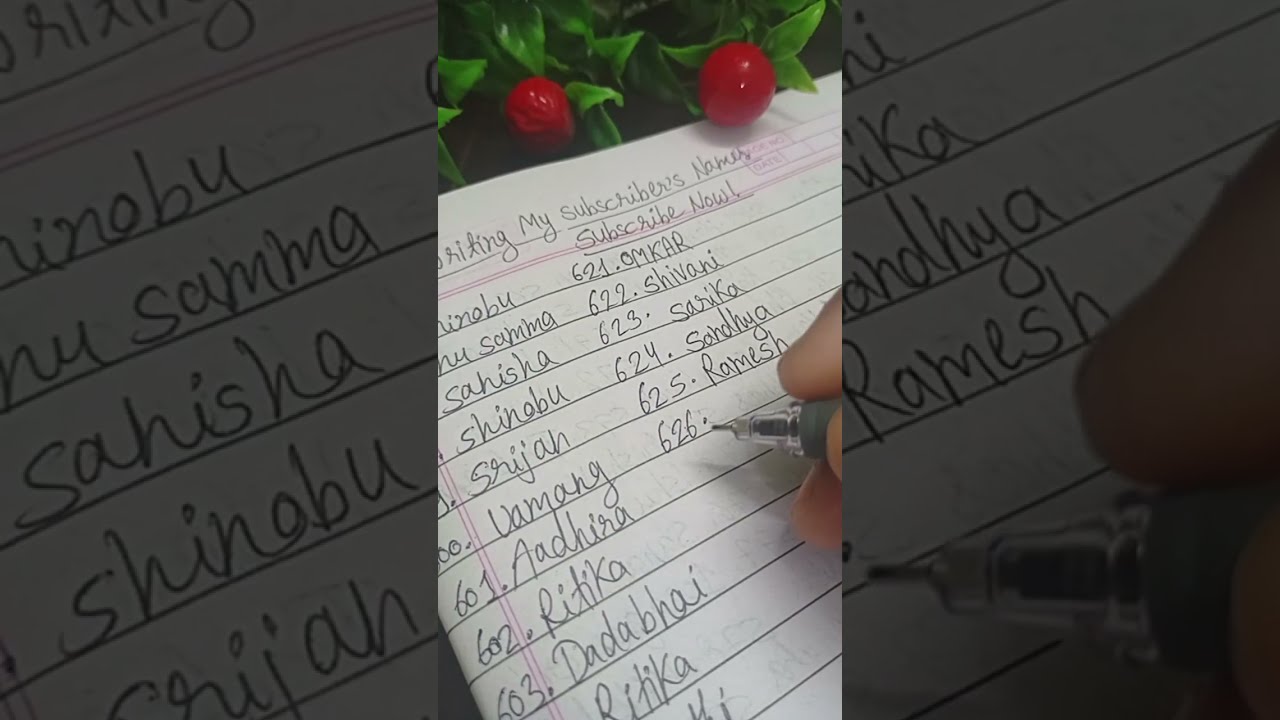 Writing My Subscriber's Names
Subscribe Now!
DATE
hinobu 621. OMKAR
nu samma 622. Shivani
sahisha 623. Sarika
shinobu 624. Sandhya
Srijan 625. Ramesh
Vamang 626.
601. Aadhira
602. Ritika
603. Dadabhai
Ritika